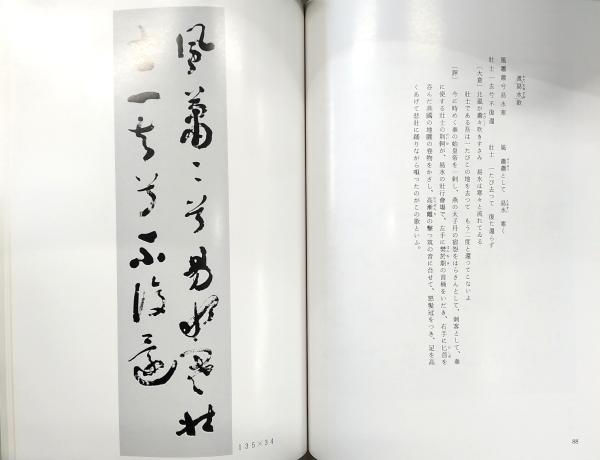 渡易水歌
風蕭蕭兮易水寒
壮士一去兮不復還
風 蕭蕭として 易水 寒く
壮士 一たび去つて 復た還らず
〔大意〕北風が蕭々吹きすさみ 易水は寒々と流れてゐる
壮士である吾は一たびこの地を去つて もう二度と還つてこないよ
〔評〕 今に時めく秦の始皇帝を一刺し、燕の太子丹の宿怨をはらさんとして、刺客として、秦
に使する壮士の荊軻が、易水の壮行會場で、左手に樊於期の首桶をいだき、右手に匕首を
呑んだ燕國の地圖の巻物をかざし、高漸離の撃つ筑の音に合せて、怒髪冠をつき、足を高
くあげて悲壮に踊りながら唄つたのがこの歌といふ。
88
風蕭〻兮易水寒壮
士一去兮不復還
135×34